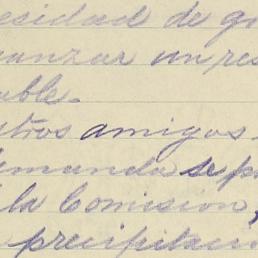 esidad de g
anzar un res
able.
stros amigos
demanda se p
la Comision,
precipitacio